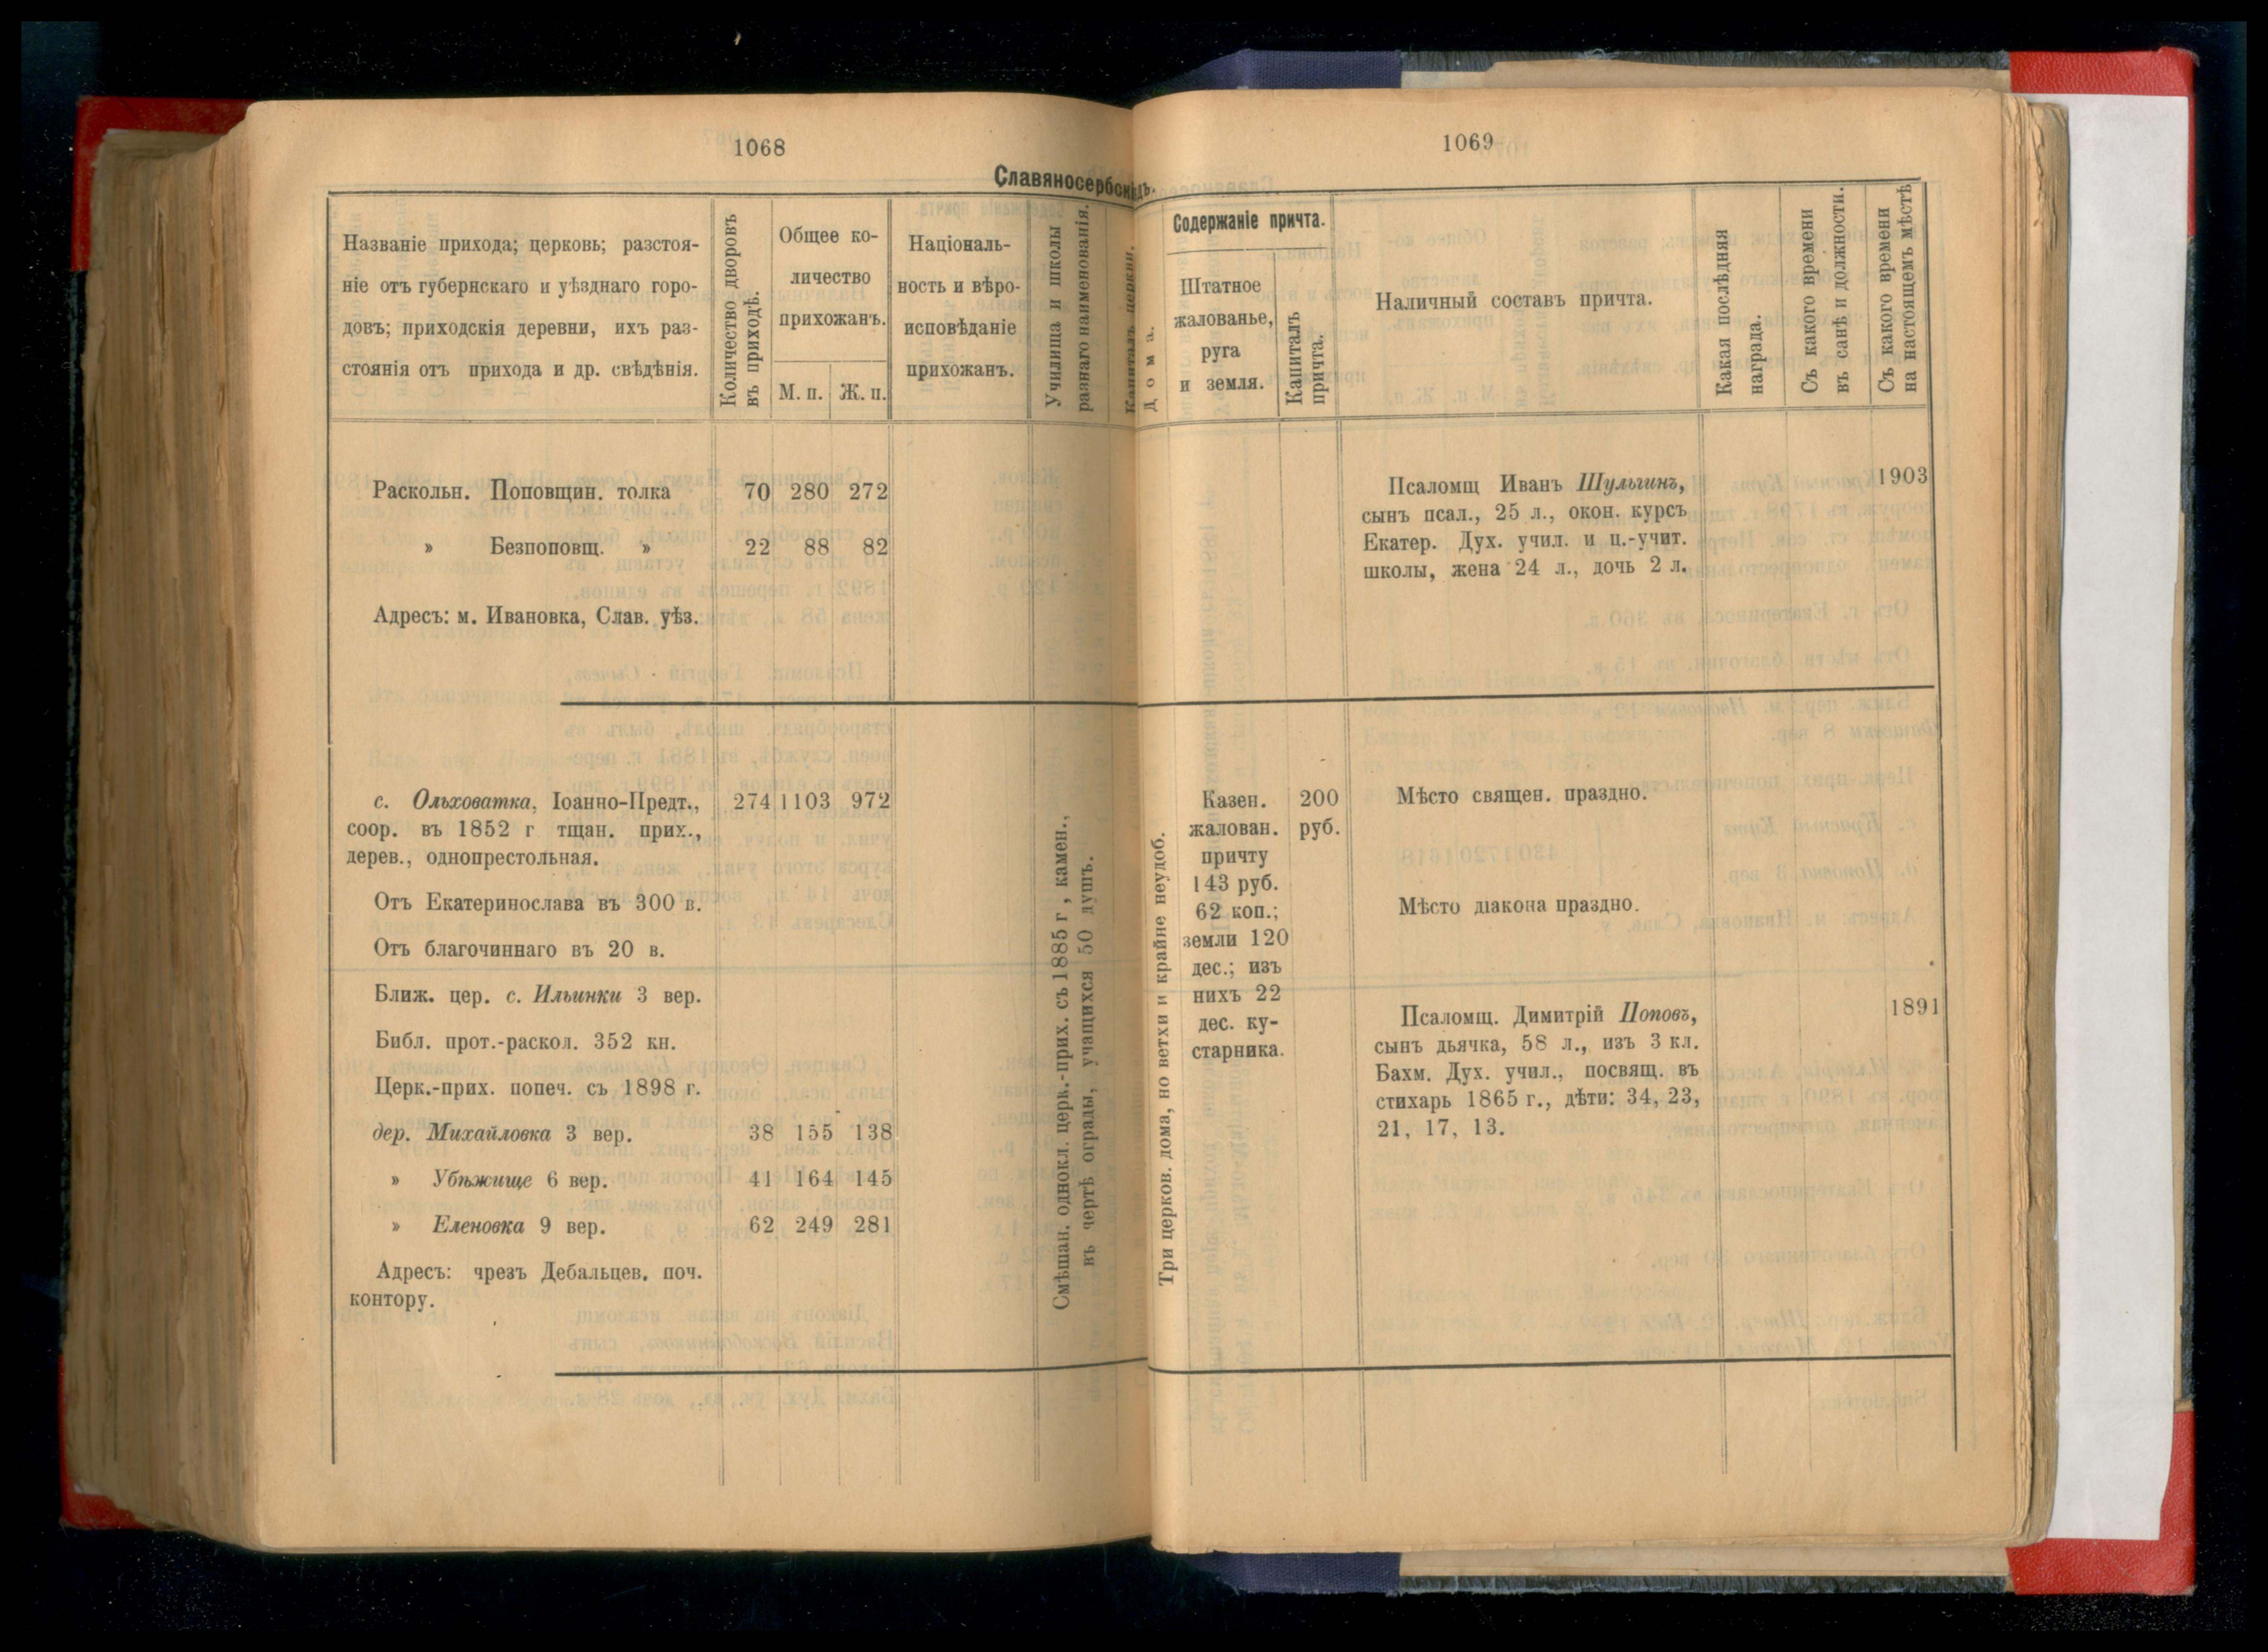 1068
Славяносербск
Названіе прихода; церковь; разстоя-
ніе отъ губернскаго и уѣзднаго горо-
довъ; приходскія деревни, ихъ раз-
стоянія отъ прихода и др. свѣдѣнія.
Количество дворовъ
въ приходѣ.
Общее ко-
личество
прихожанъ.
М. п. Ж. п.
Національ-
ность и вѣро-
исповѣданіе
прихожанъ.
Училища и школы
разнаго наименованія.
Капиталъ церкви.
Раскольн. Поповщин. толка 70 280 272
» Безпоповщ. » 22 88 82
Адресъ: м. Ивановка, Слав. уѣз.
с. Ольховатка, Іоанно-Предт., 274 1103 972
соор. въ 1852 г тщан. прих.,
дерев., однопрестольная.
Отъ Екатеринослава въ 300 в.
Отъ благочиннаго въ 20 в.
Ближ. цер. с. Ильинки 3 вер.
Библ. прот.-раскол. 352 кн.
Церк.-прих. попеч. съ 1898 г.
дер. Михайловка 3 вер. 38 155 138
» Убѣжище 6 вер. 41 164 145
» Еленовка 9 вер. 62 249 281
Адресъ: чрезъ Дебальцев. поч.
контору.
Смѣшан. однокл. церк.-прих. съ 1885 г, камен.,
въ чертѣ ограды, учащихся 50 душъ.
1069
Дома.
Содержаніе причта.
Штатное
жалованье,
руга
и земля.
Капиталъ
причта.
Наличный составъ причта.
Какая послѣдняя
награда.
Съ какого времени
въ санѣ и должности.
Съ какого времени
на настоящемъ мѣстѣ
Псаломщ Иванъ Шульгинъ, 1903
сынъ псал., 25 л., окон. курсъ
Екатер. Дух. учил. и ц.-учит.
школы, жена 24 л., дочь 2 л.
Три церков. дома, но ветхи и крайне неудоб.
Казен.
жалован.
причту
143 руб.
62 коп.;
земли 120
дес.; изъ
нихъ 22
дес. ку-
старника.
200
руб.
Мѣсто священ. праздно.
Мѣсто діакона праздно.
Псаломщ. Димитрій Поповъ, 1891
сынъ дьячка, 58 л., изъ 3 кл.
Бахм. Дух. учил., посвящ. въ
стихарь 1865 г., дѣти: 34, 23,
21, 17, 13.